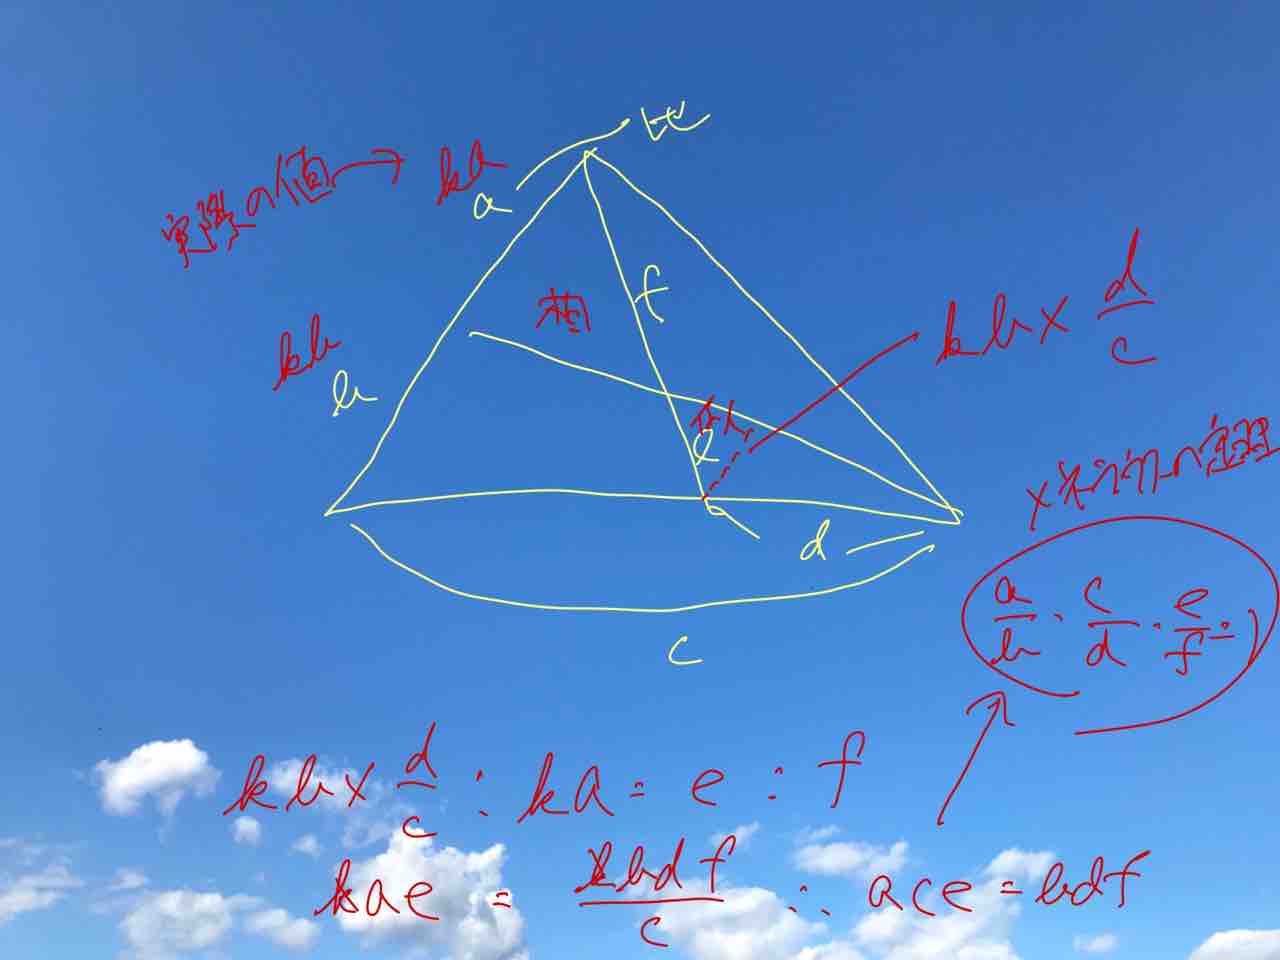 比
実際の値→ ka
a
f
相
kb
b
kb× d/c
相
e
d
c
メネラウスの定理
a/b・c/d・e/f=1
kb× d/c : ka = e : f
kae = kbdf/c ∴ ace = bdf